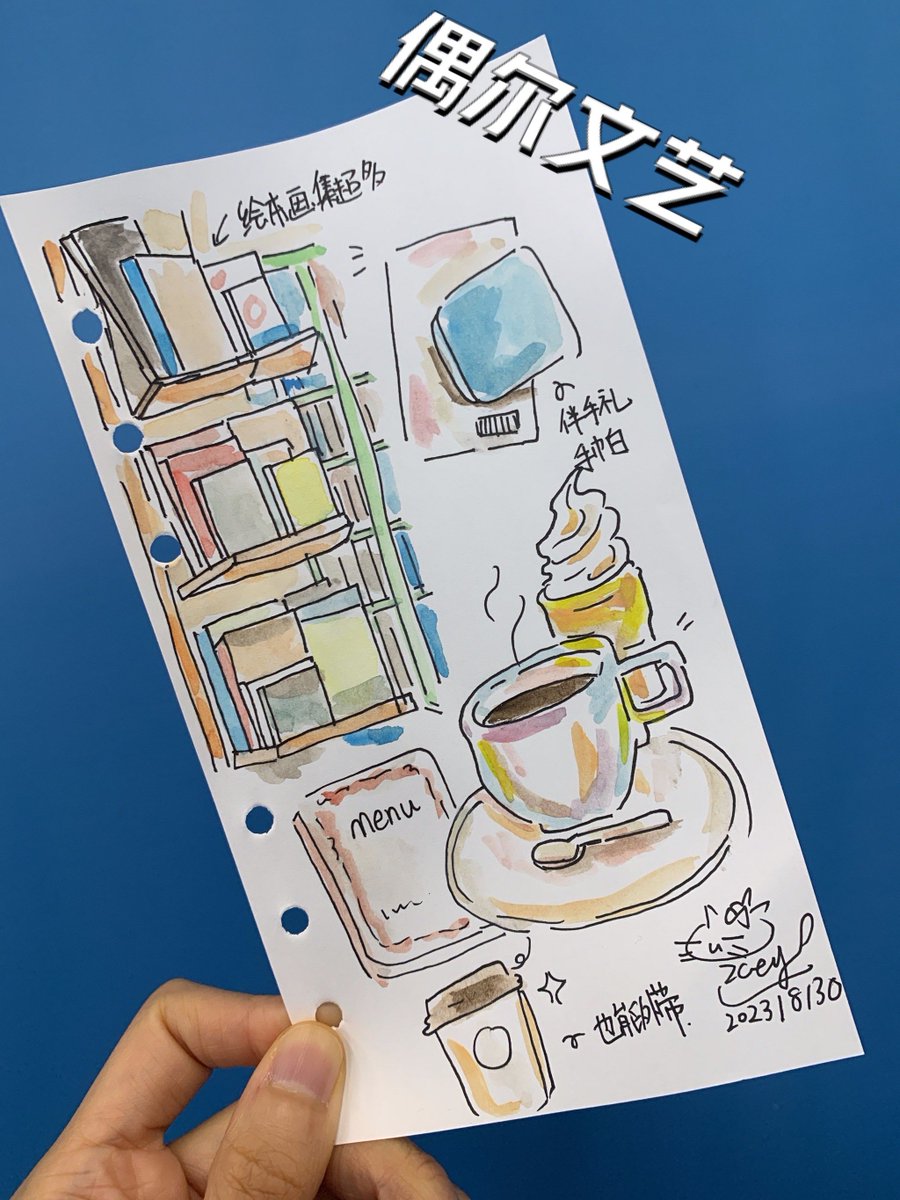 偶尔文艺
绘本画集超多
伴手礼
手帕
menu
zoey
2023/8/30
也能外带.